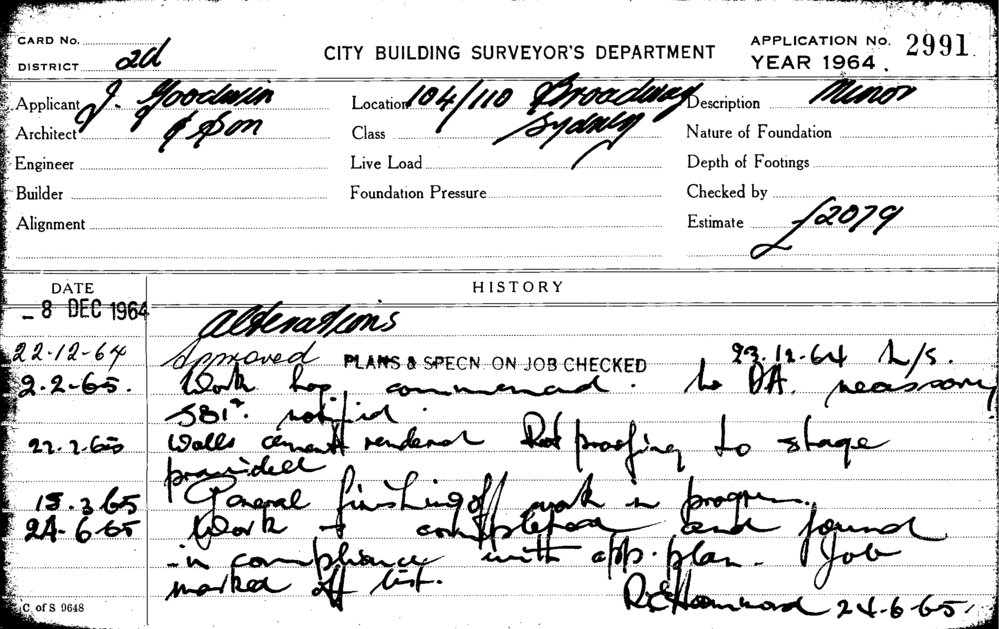 CARD No.
DISTRICT 2d
CITY BUILDING SURVEYOR'S DEPARTMENT
APPLICATION No. 2991
YEAR 1964.
Applicant J. Goodwin
Location 104/110 Broadway
Description Minor
Architect & Son
Class Sydney
Nature of Foundation
Engineer
Live Load
Depth of Footings
Builder
Foundation Pressure
Checked by
Alignment
Estimate £2079
DATE
HISTORY
- 8 DEC 1964 Alterations
22-12-64 Approved PLANS & SPECN. ON JOB CHECKED 23.12.64
2.2-65. Work has commenced. No DA. necessary
notified.
Walls cement rendered Rat proofing to stage
provided
15.3.65 General finishing off work in progress.
24-6-65 Work completed and found
in compliance with app. plan. Job
marked off list.
24-6-65.
C. of S 9648